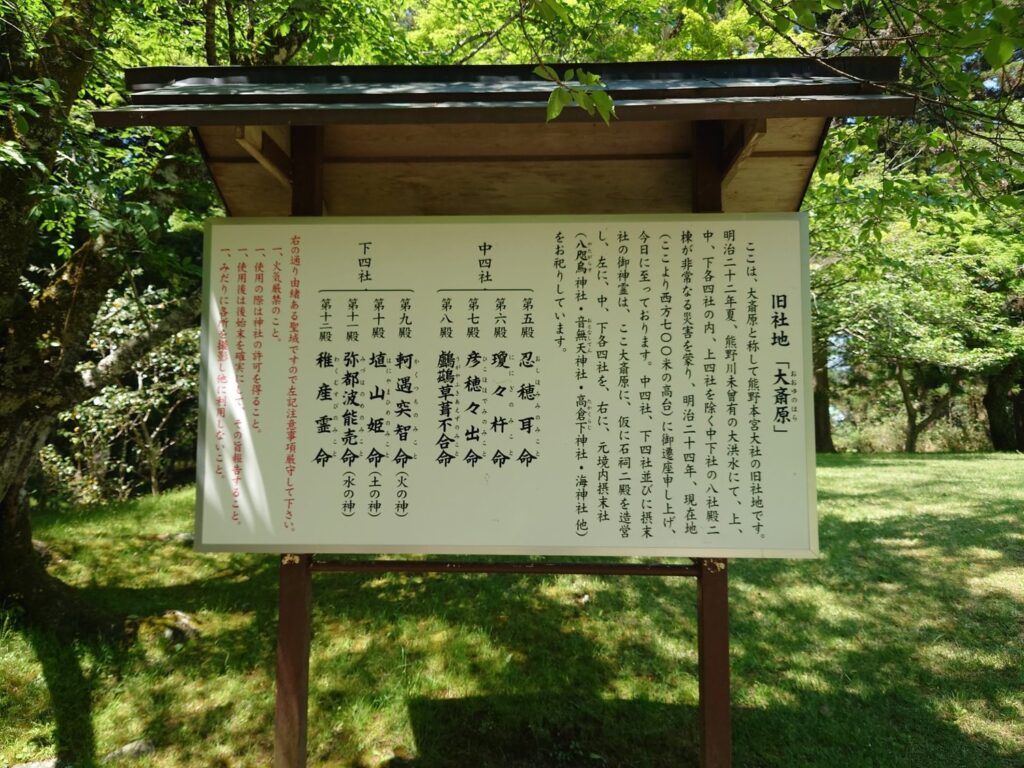 旧社地 「大斎原」
おおゆのはら
ここは、大斎原と称して熊野本宮大社の旧社地です。
明治二十二年夏、熊野川未曾有の大洪水にて、上、
中、下各四社の内、上四社を除く中下社の八社殿二
棟が非常なる災害を蒙り、明治二十四年、現在地
(ここより西方七〇〇米の高台)に御遷座申し上げ、
今日に至っております。中四社、下四社並びに摂末
社の御神霊は、ここ大斎原に、仮に石祠二殿を造営
し、左に、中、下各四社を、右に、元境内摂末社
(八咫烏神社・音無天神社・高倉下神社・海神社 他)
をお祀りしています。
中四社
第五殿 忍穂耳命
おしほみみのみこと
第六殿 瓊々杵命
ににぎのみこと
第七殿 彦穂々出命
ひこほほでみのみこと
第八殿 鸕鷀草葺不合命
うがやふきあえずのみこと
下四社
第九殿 軻遇突智命(火の神)
かぐつちのみこと
第十殿 埴山姫命(土の神)
はにやまひめのみこと
第十一殿 弥都波能売命(水の神)
みづはのめのみこと
第十二殿 稚産霊命
わくむすびのみこと
右の通り由緒ある聖域ですので左記注意事項厳守して下さい。
一、火気厳禁のこと。
一、使用の際は神社の許可を得ること。
一、使用後は後始末を確実にし、その旨報告すること。
一、みだりに各所を撮影し他に利用しないこと。